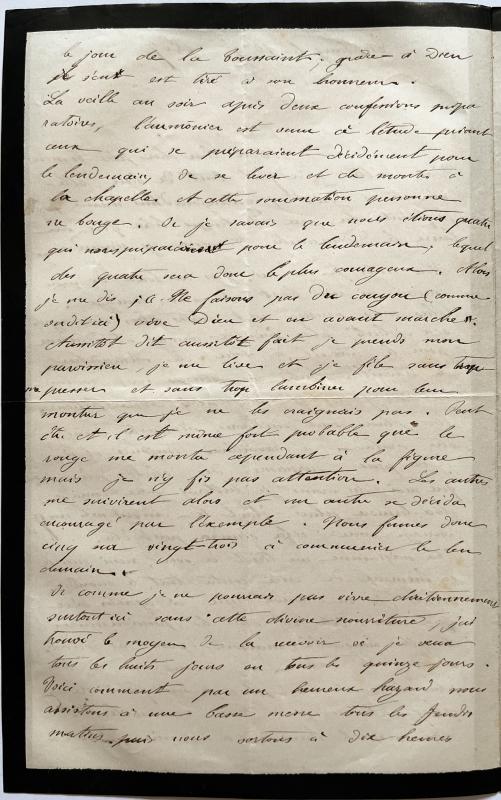 le jour de la Toussaint, grâce à Dieu
s'en est tiré à son honneur.
La veille au soir après deux confessions prépa
ratoires, l'aumônier est venu à l'étude priant
ceux qui se préparaient décidément pour
le lendemain, de se lever et de monter à
la chapelle. et cette sommation personne
ne bouge. Or je savais que nous étions quatre
qui nous préparaient pour le lendemain, lequel
des quatre sera donc le plus courageux. Alors
je me dis, Ne faisons pas du couyon (comme
on dit ici) vive Dieu et en avant marche.
Aussitôt dit aussitôt fait je prends mon
paroissien, je me lève et je file sans trop
me presser et sans trop lambiner pour leur
montrer que je ne les craignais pas. Peut
être et il est même fort probable que le
rouge me monta cependant à la figure
mais je n'y fis pas attention. Les autres
me suivirent alors et un autre se décida
encouragé par l'exemple. Nous fumes donc
cinq sur vingt-trois à communier le len
demain.
Or comme je ne pourrais pas vivre chrétiennement
surtout ici sans cette divine nourriture, j'ai
trouvé le moyen de la recevoir où je veux
tous les huits jours ou tous les quinze jours.
Voici comment par un heureux hazard nous
assistons à une basse messe tous les Jeudis
matins puis nous sortons à dix heures